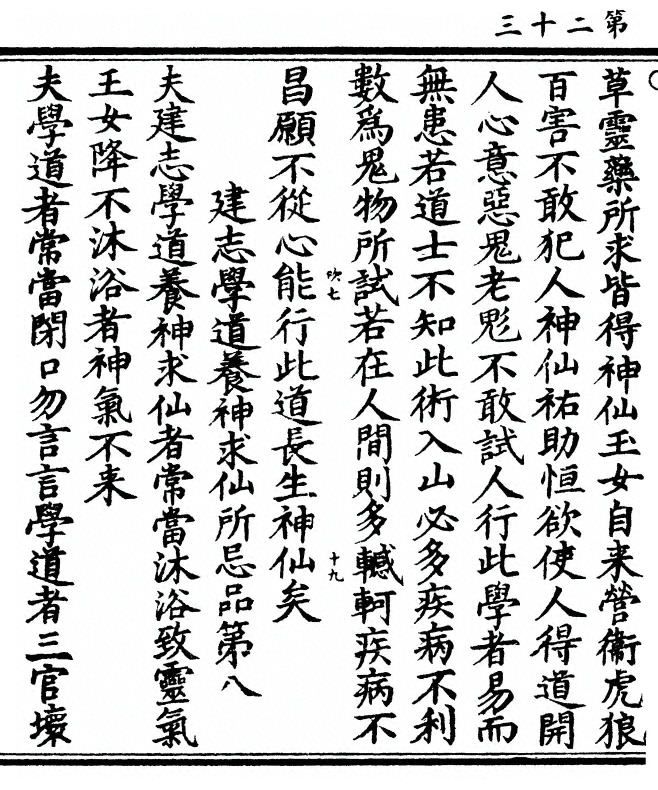 第二十三
草靈藥所求皆得神仙玉女自来營衞虎狼
百害不敢犯人神仙祐助恒欲使人得道開
人心意惡鬼老魅不敢試人行此學者易而
無患若道士不知此術入山必多疾病不利
數爲鬼物所試若在人間則多轗軻疾病不
十九
昌願不從心能行此道長生神仙矣
建志學道養神求仙所忌品第八
夫建志學道養神求仙者常當沐浴致靈氣
王女降不沐浴者神氣不来
夫學道者常當閉口勿言言學道者三官壞